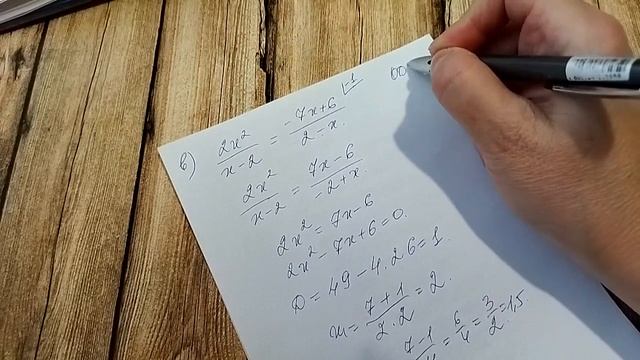 в) 2x²/(x-2) = (-7x+6)/(2-x) |-1 ОО
2x²/(x-2) = (7x-6)/(-2+x)
2x² = 7x-6
2x² - 7x+6=0.
D = 49 - 4·2·6=1.
x₁ = (7+1)/(2·2) = 2.
(7-1)/4 = 6/4 = 3/2 = 1,5